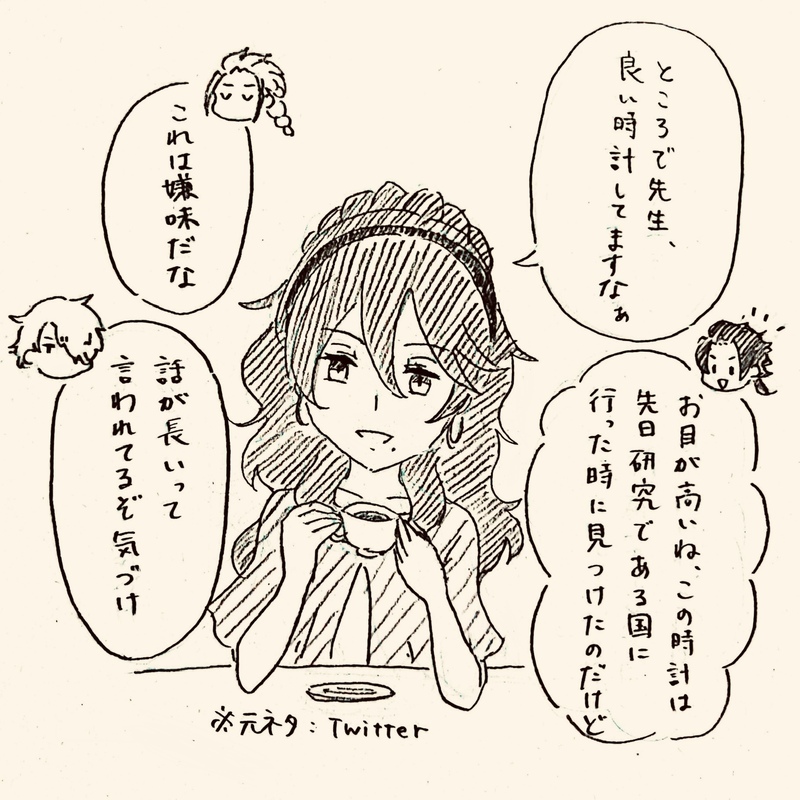 ところで先生、
良い時計してますなぁ
お目が高いね、この時計は
先日研究である国に
行った時に見つけたのだけど
これは嫌味だな
話が長いって
言われてるぞ気づけ
※元ネタ：Twitter